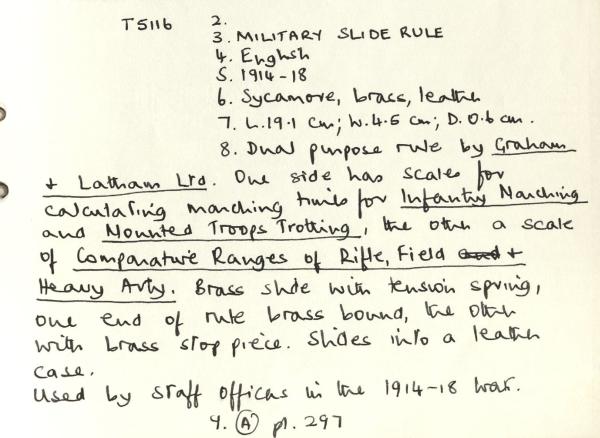 T5116 2.
3. MILITARY SLIDE RULE
4. English
5. 1914-18
6. Sycamore, brass, leather
7. L.19.1 cm; W.4.5 cm; D.0.6 cm.
8. Dual purpose rule by Graham
+ Latham Ltd. One side has scales for
calculating marching times for Infantry Marching
and Mounted Troops Trotting, the other a scale
of Comparative Ranges of Rifle, Field and +
Heavy Arty. Brass slide with tension spring,
one end of rule brass bound, the other
with brass stop piece. Slides into a leather
case.
Used by staff officers in the 1914-18 war.
9. (A) pl. 297